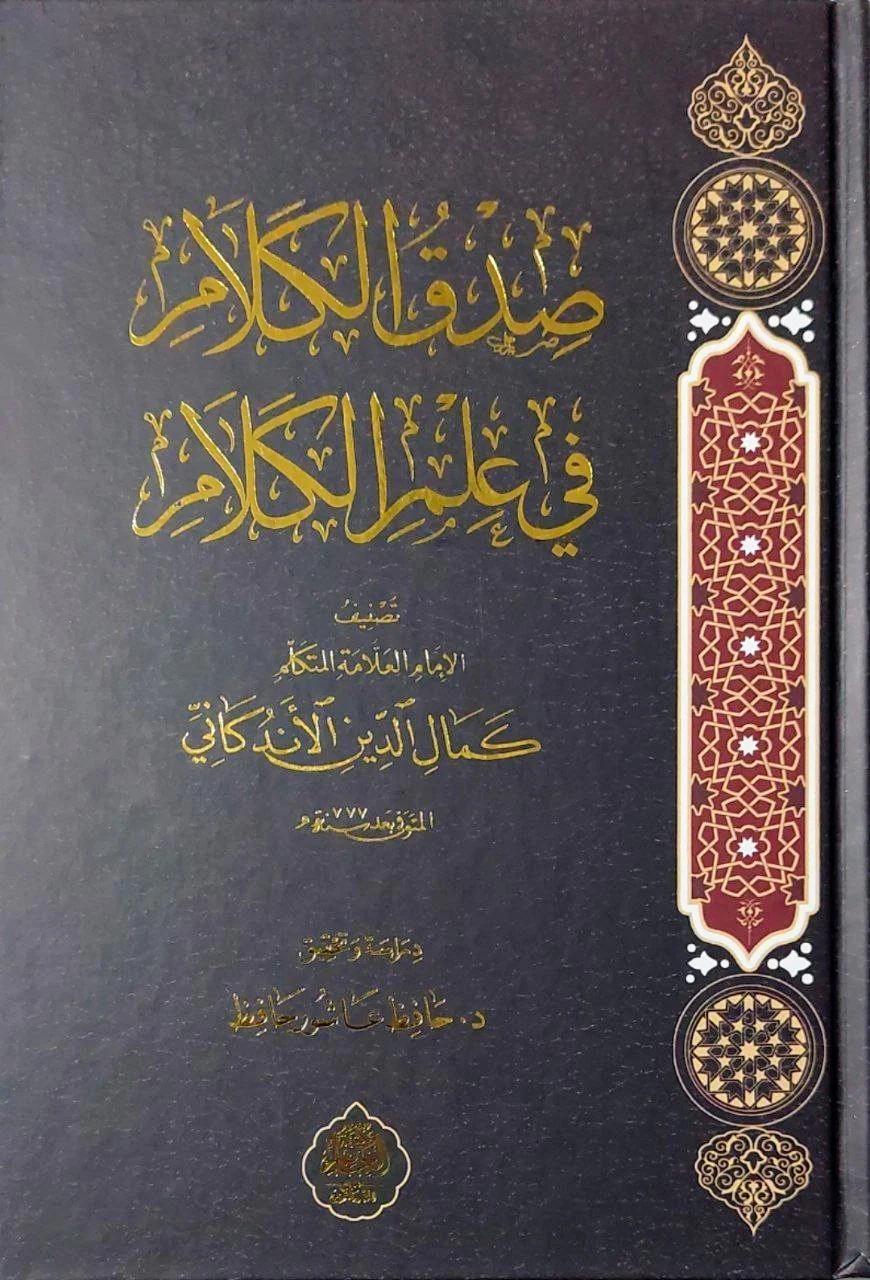 صِدْقُ الكَلَامِ
فِي عِلْمِ الكَلَامِ
تَصْنِيفُ
الإِمَامِ العَلَّامَةِ المُتَكَلِّمِ
كَمَالِ الدِّينِ الأَنْدُكَانِيِّ
المتوفى بعد سنة ٧٧٧هـ
دِرَاسَة وَتَحْقِيق
د. حَافِظ عَاشُور حَافِظ